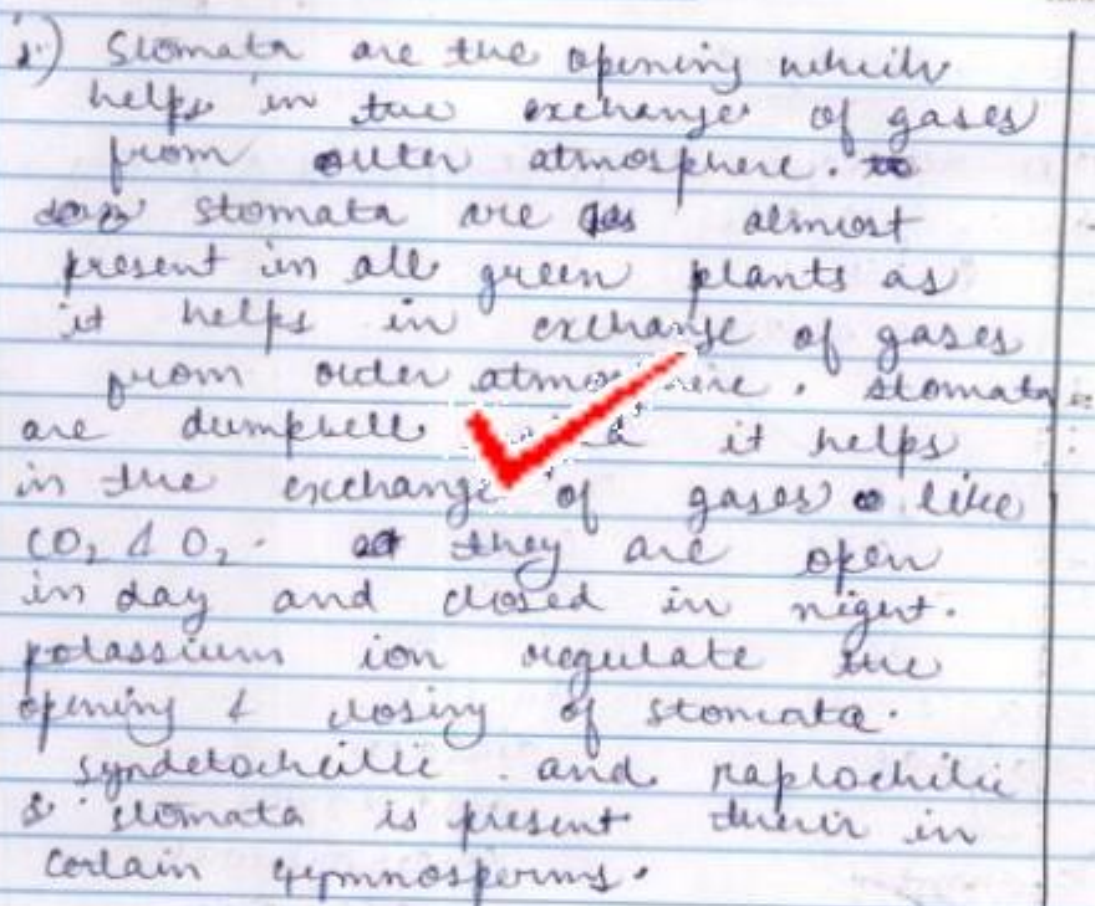 i) Stomata are the opening which
helps in the exchange of gases
from outer atmosphere. to
stomata are almost
present in all green plants as
it helps in exchange of gases
from outer atmosphere. stomata
are dumpbell it helps
in the exchange of gases like
CO2 & O2. they are open
in day and closed in night.
potassium ion regulate the
opening & closing of stomata.
syndetocheilic and haplocheilic
stomata is present in
certain gymnosperms.